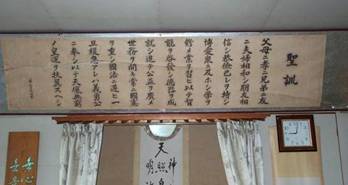 聖訓
父母ニ孝ニ兄弟ニ友
ニ夫婦相和シ朋友相
信シ恭儉己レヲ持シ
博愛衆ニ及ホシ學ヲ
修メ業ヲ習ヒ以テ智
能ヲ啓發シ德器ヲ成
就シ進テ公益ヲ廣メ
世務ヲ開キ常ニ國憲
ヲ重シ國法ニ遵ヒ一
旦緩急アレハ義勇公
ニ奉シ以テ天壤無窮
ノ皇運ヲ扶翼スヘシ
神
天照皇
明治